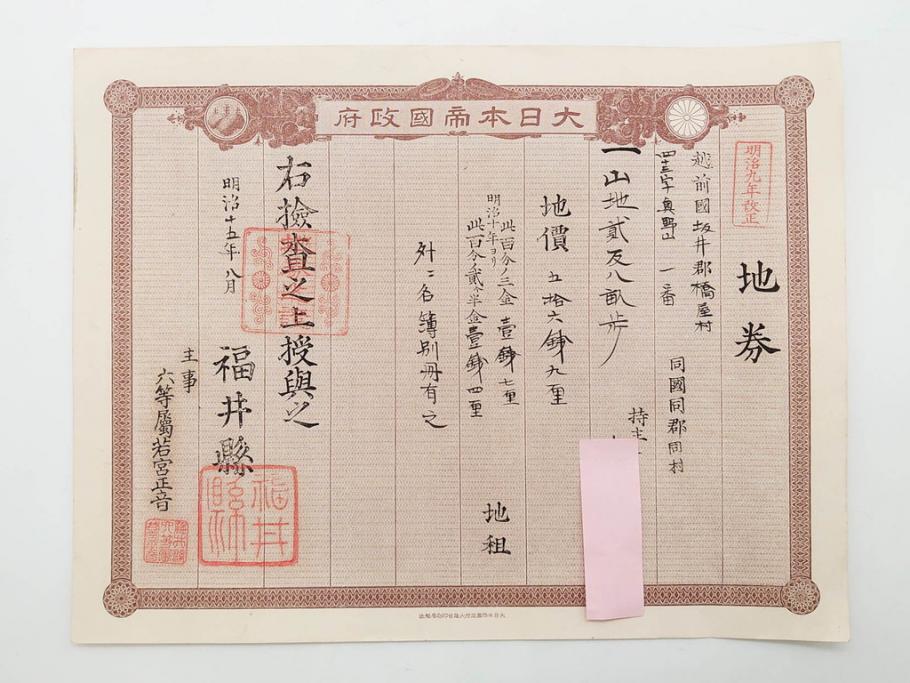 大日本帝國政府
明治九年改正
地券
越前國坂井郡橋屋村
四十三字奥野山 一番
同國同郡同村
持主
一山地貳反八畝歩
地價 五拾六錢九厘
此百分ノ三金壹錢七厘
明治十年ヨリ
此百分ノ貳ヶ半金壹錢四厘
地租
外ニ名簿別冊有之
右撿査之上授與之
明治十五年八月
福井縣
主事
六等屬若宮正音